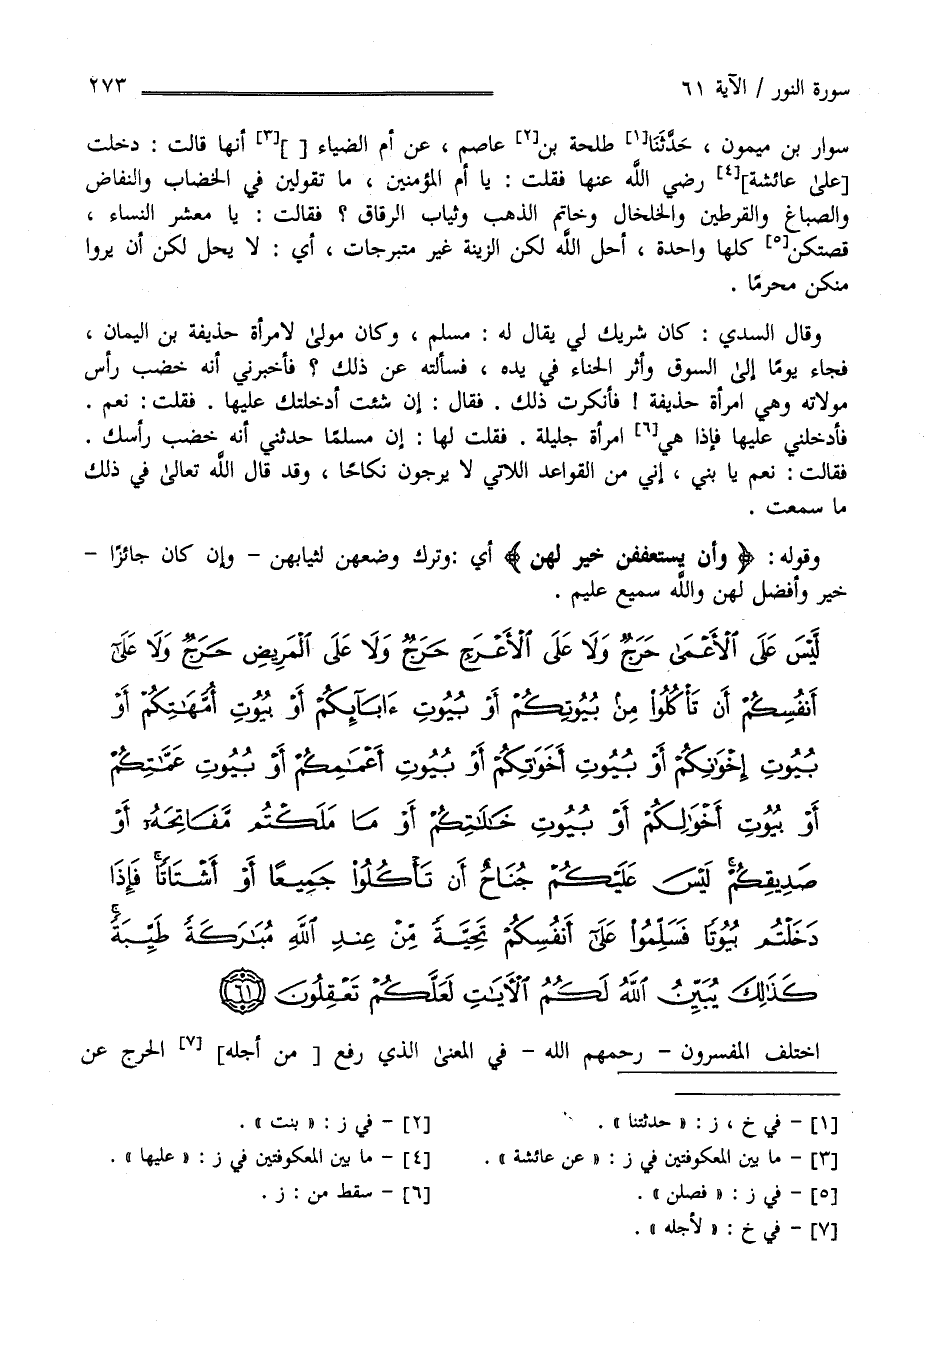 سورة النور / الآية ٦١ ٢٧٣
سوار بن ميمون ، حَدَّثَنَا[١] طلحة بن[٢] عاصم ، عن أم الضياء [ ][٣] أنها قالت : دخلت
[علىٰ عائشة][٤] رضي اللَّه عنها فقلت : يا أم المؤمنين ، ما تقولين في الخضاب والنفاض
والصباغ والقرطين والخلخال وخاتم الذهب وثياب الرقاق ؟ فقالت : يا معشر النساء ،
قصتكن[٥] كلها واحدة ، أحل اللَّه لكن الزينة غير متبرجات ، أي : لا يحل لكن أن يروا
منكن محرمًا .
وقال السدي : كان شريك لي يقال له : مسلم ، وكان مولىٰ لامرأة حذيفة بن اليمان ،
فجاء يومًا إلىٰ السوق وأثر الحناء في يده ، فسألته عن ذلك ؟ فأخبرني أنه خضب رأس
مولاته وهي امرأة حذيفة ! فأنكرت ذلك . فقال : إن شئت أدخلتك عليها . فقلت : نعم .
فأدخلني عليها فإذا هي[٦] امرأة جليلة . فقلت لها : إن مسلمًا حدثني أنه خضب رأسك .
فقالت : نعم يا بني ، إني من القواعد اللاتي لا يرجون نكاحًا ، وقد قال اللَّه تعالىٰ في ذلك
ما سمعت .
وقوله : ﴿ وأن يستعففن خير لهن ﴾ أي :وترك وضعهن لثيابهن – وإن كان جائزًا –
خير وأفضل لهن واللَّه سميع عليم .
لَيْسَ عَلَى ٱلْأَعْمَىٰ حَرَجٌ وَلَا عَلَى ٱلْأَعْرَجِ حَرَجٌ وَلَا عَلَى ٱلْمَرِيضِ حَرَجٌ وَلَا عَلَىٰٓ
أَنفُسِكُمْ أَن تَأْكُلُوا۟ مِنۢ بُيُوتِكُمْ أَوْ بُيُوتِ ءَابَآئِكُمْ أَوْ بُيُوتِ أُمَّهَٰتِكُمْ أَوْ
بُيُوتِ إِخْوَٰنِكُمْ أَوْ بُيُوتِ أَخَوَٰتِكُمْ أَوْ بُيُوتِ أَعْمَٰمِكُمْ أَوْ بُيُوتِ عَمَّٰتِكُمْ
أَوْ بُيُوتِ أَخْوَٰلِكُمْ أَوْ بُيُوتِ خَٰلَٰتِكُمْ أَوْ مَا مَلَكْتُم مَّفَاتِحَهُۥٓ أَوْ
صَدِيقِكُمْ ۚ لَيْسَ عَلَيْكُمْ جُنَاحٌ أَن تَأْكُلُوا۟ جَمِيعًا أَوْ أَشْتَاتًا ۚ فَإِذَا
دَخَلْتُم بُيُوتًا فَسَلِّمُوا۟ عَلَىٰٓ أَنفُسِكُمْ تَحِيَّةً مِّنْ عِندِ ٱللَّهِ مُبَٰرَكَةً طَيِّبَةً ۚ
كَذَٰلِكَ يُبَيِّنُ ٱللَّهُ لَكُمُ ٱلْءَايَٰتِ لَعَلَّكُمْ تَعْقِلُونَ ٦١
اختلف المفسرون – رحمهم الله – في المعنىٰ الذي رفع [ من أجله] [٧] الحرج عن
[١] – في خ ، ز : « حدثتنا » . [٢] – في ز : « بنت » .
[٣] – ما بين المعكوفتين في ز : « عن عائشة » . [٤] – ما بين المعكوفتين في ز : « عليها » .
[٥] – في ز : « فصلن » . [٦] – سقط من : ز .
[٧] – في خ : « لأجله » .